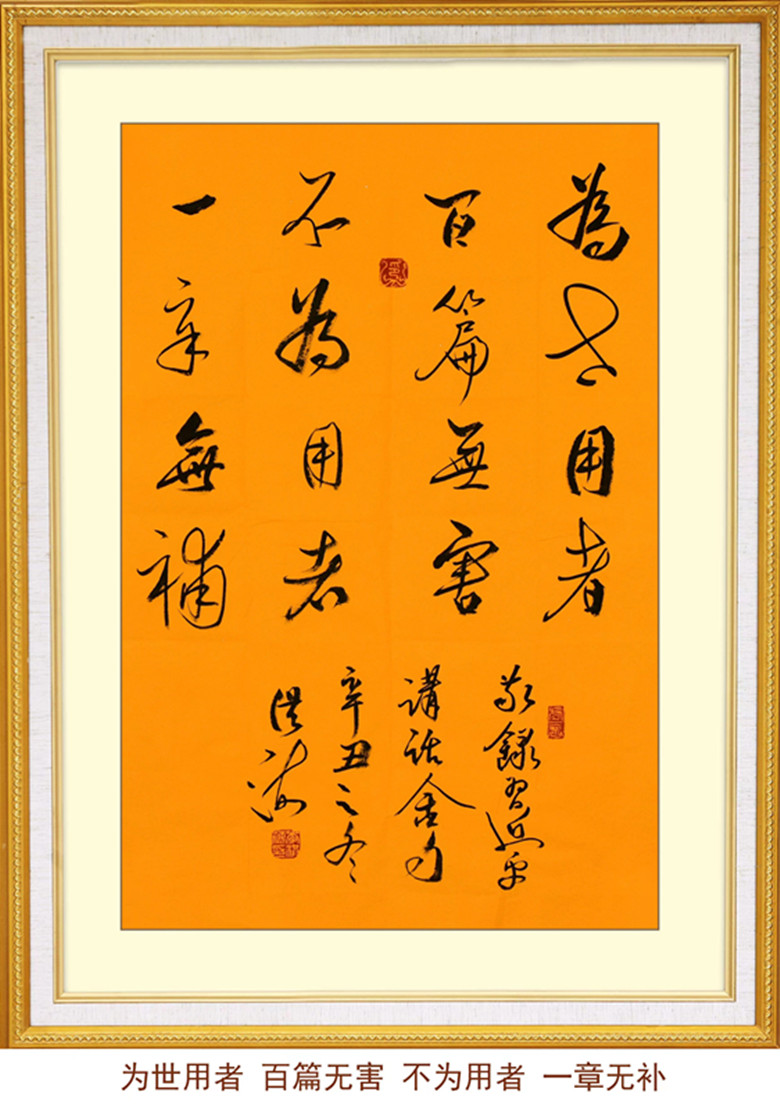 為世用者
百篇無害
不為用者
一章無補
敬錄習近平
講話金句
辛丑之冬
洪海
为世用者 百篇无害 不为用者 一章无补